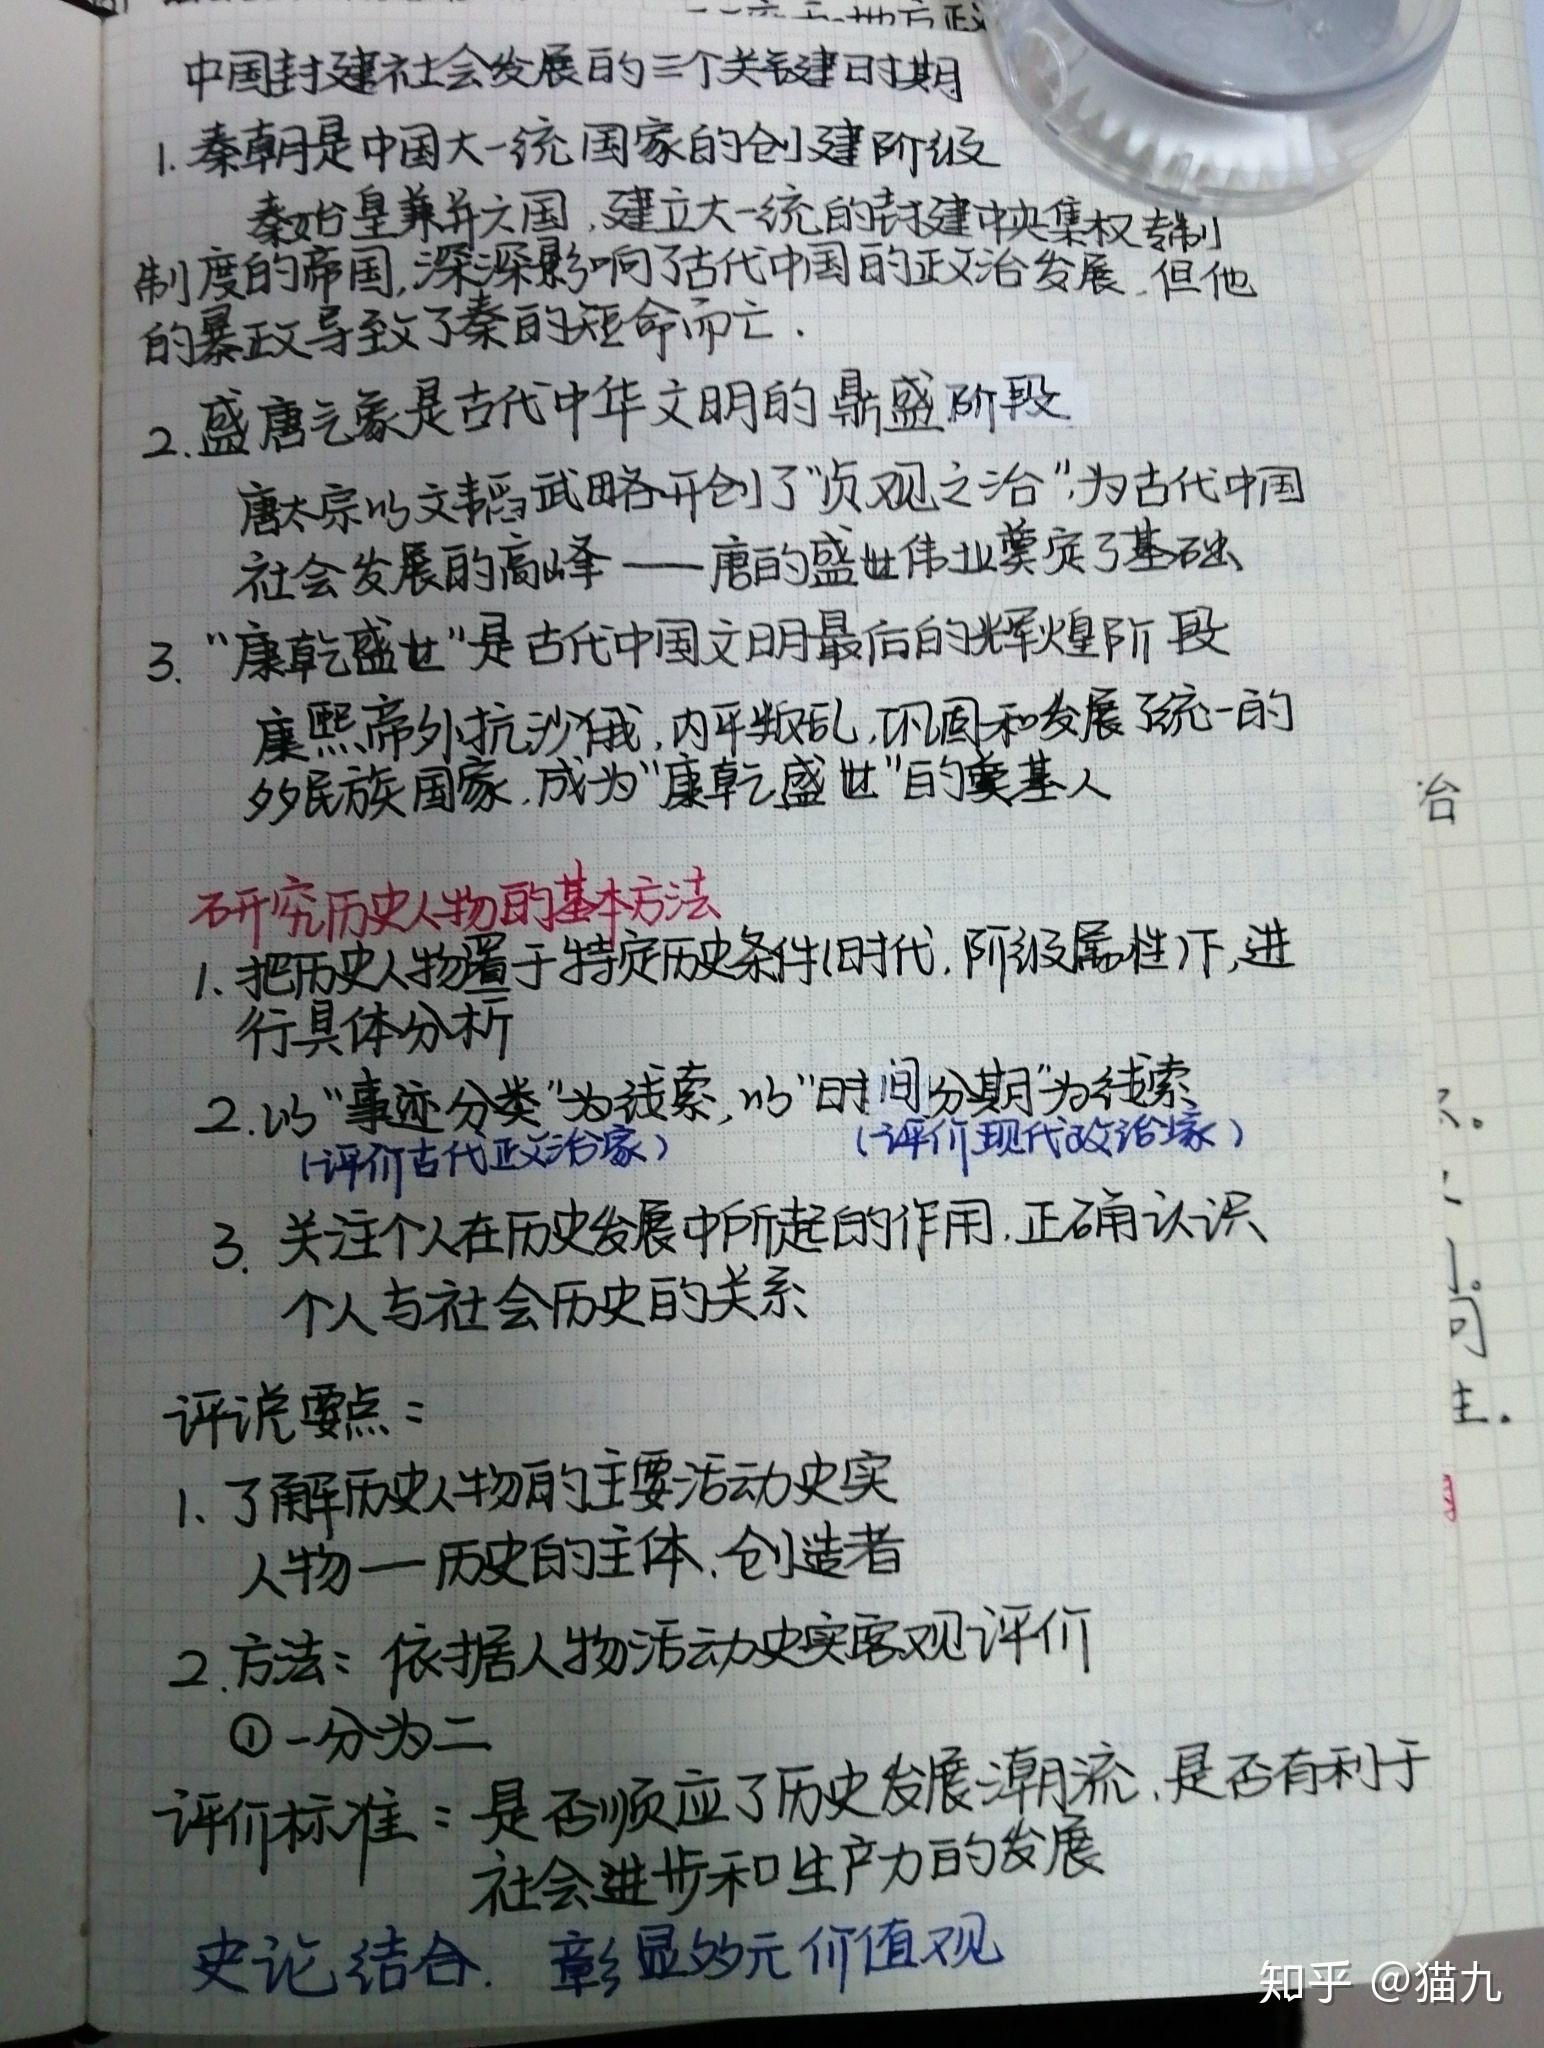 中国封建社会发展的三个关键时期
1. 秦朝是中国大一统国家的创建阶级
秦始皇兼并六国，建立大一统的封建中央集权专制
制度的帝国，深深影响了古代中国的政治发展，但他
的暴政导致了秦的短命而亡.
2. 盛唐气象是古代中华文明的鼎盛阶段
唐太宗以文韬武略开创了"贞观之治"，为古代中国
社会发展的高峰——唐的盛世伟业奠定了基础
3. "康乾盛世"是古代中国文明最后的辉煌阶段
康熙帝外抗沙俄，内平叛乱，巩固和发展了统一的
多民族国家，成为"康乾盛世"的奠基人
研究历史人物的基本方法
1. 把历史人物置于特定历史条件(时代，阶级属性)下，进
行具体分析
2. 以"事迹分类"为线索，以"时间分期"为线索
(评价古代政治家) (评价现代政治家)
3. 关注个人在历史发展中所起的作用，正确认识
个人与社会历史的关系
评说要点：
1. 了解历史人物的主要活动史实
人物——历史的主体、创造者
2. 方法：依据人物活动史实客观评价
①一分为二
评价标准：是否顺应了历史发展潮流，是否有利于
社会进步和生产力的发展
史论结合. 彰显多元价值观
治
可
主.
知乎 @猫九